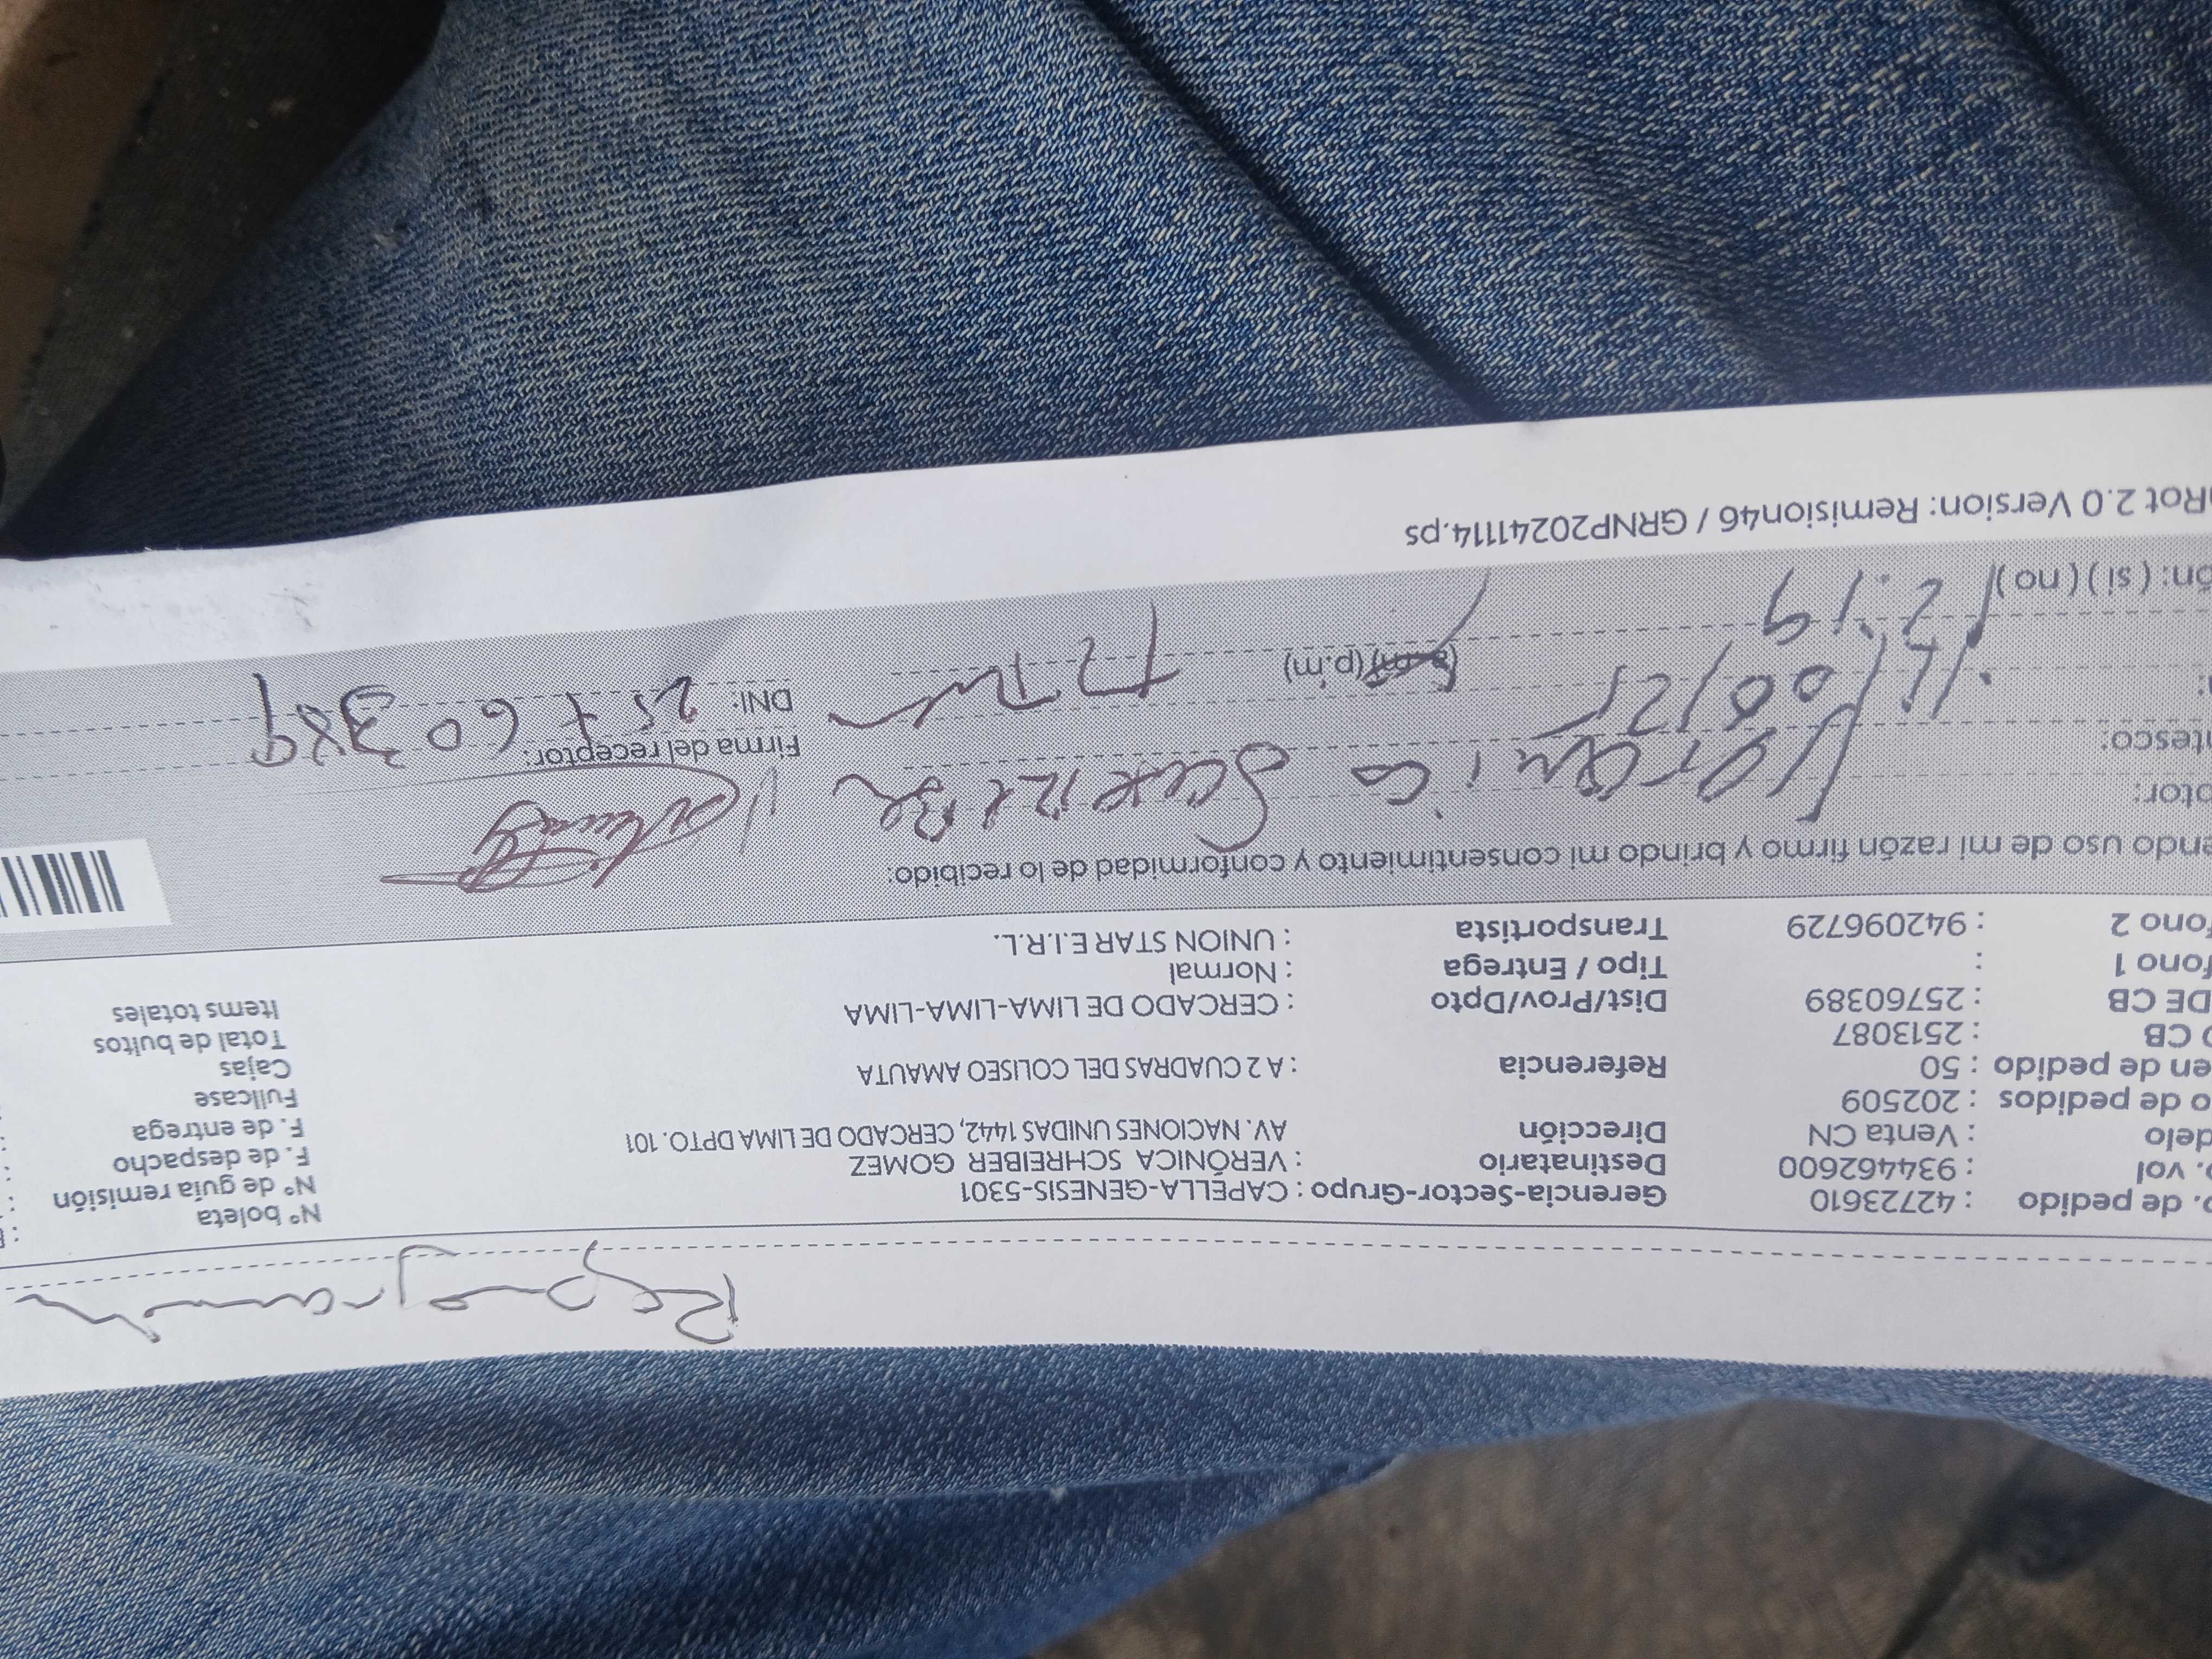 Reprogramado
o. de pedido : 42723610 Gerencia-Sector-Grupo : CAPELLA-GENESIS-5301 N° boleta
o. vol : 934462600 Destinatario : VERÓNICA SCHREIBER GOMEZ N° de guía remisión :
delo : Venta CN Dirección AV. NACIONES UNIDAS 1442, CERCADO DE LIMA DPTO. 101 F. de despacho :
o de pedidos : 202509 F. de entrega :
en de pedido : 50 Referencia : A 2 CUADRAS DEL COLISEO AMAUTA Fullcase
o CB : 2513087 Cajas
DE CB : 25760389 Dist/Prov/Dpto : CERCADO DE LIMA-LIMA-LIMA Total de bultos
fono 1 : Tipo / Entrega : Normal Items totales
fono 2 : 942096729 Transportista : UNION STAR E.I.R.L.
endo uso de mi razón firmo y brindo mi consentimiento y conformidad de lo recibido:
ptor: Verónica
ntesco: Firma del receptor:
(a.m) (p.m) DNI: 25760389
on: ( si ) ( no ) 12:19
Rot 2.0 Version: Remision46 / GRNP20241114.ps